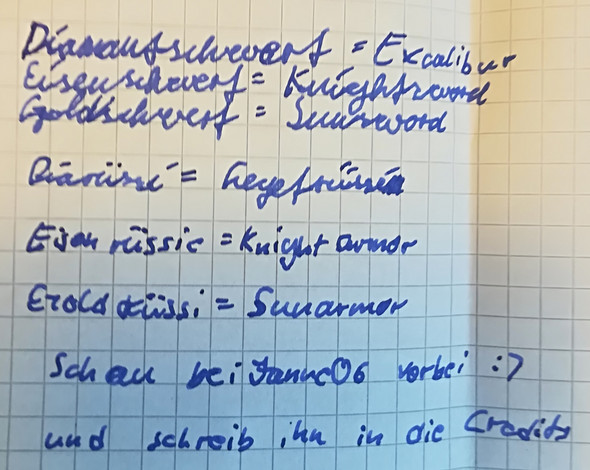 Diamantschwert = Excalibur
Eisenschwert = Knightsword
Goldschwert = Sunsword
Diarüssi =
Eisen rüssie = Knight armor
Gold rüssi = Sunarmor
Schau bei 06 vorbei :)
und schreib ihn in die Credits